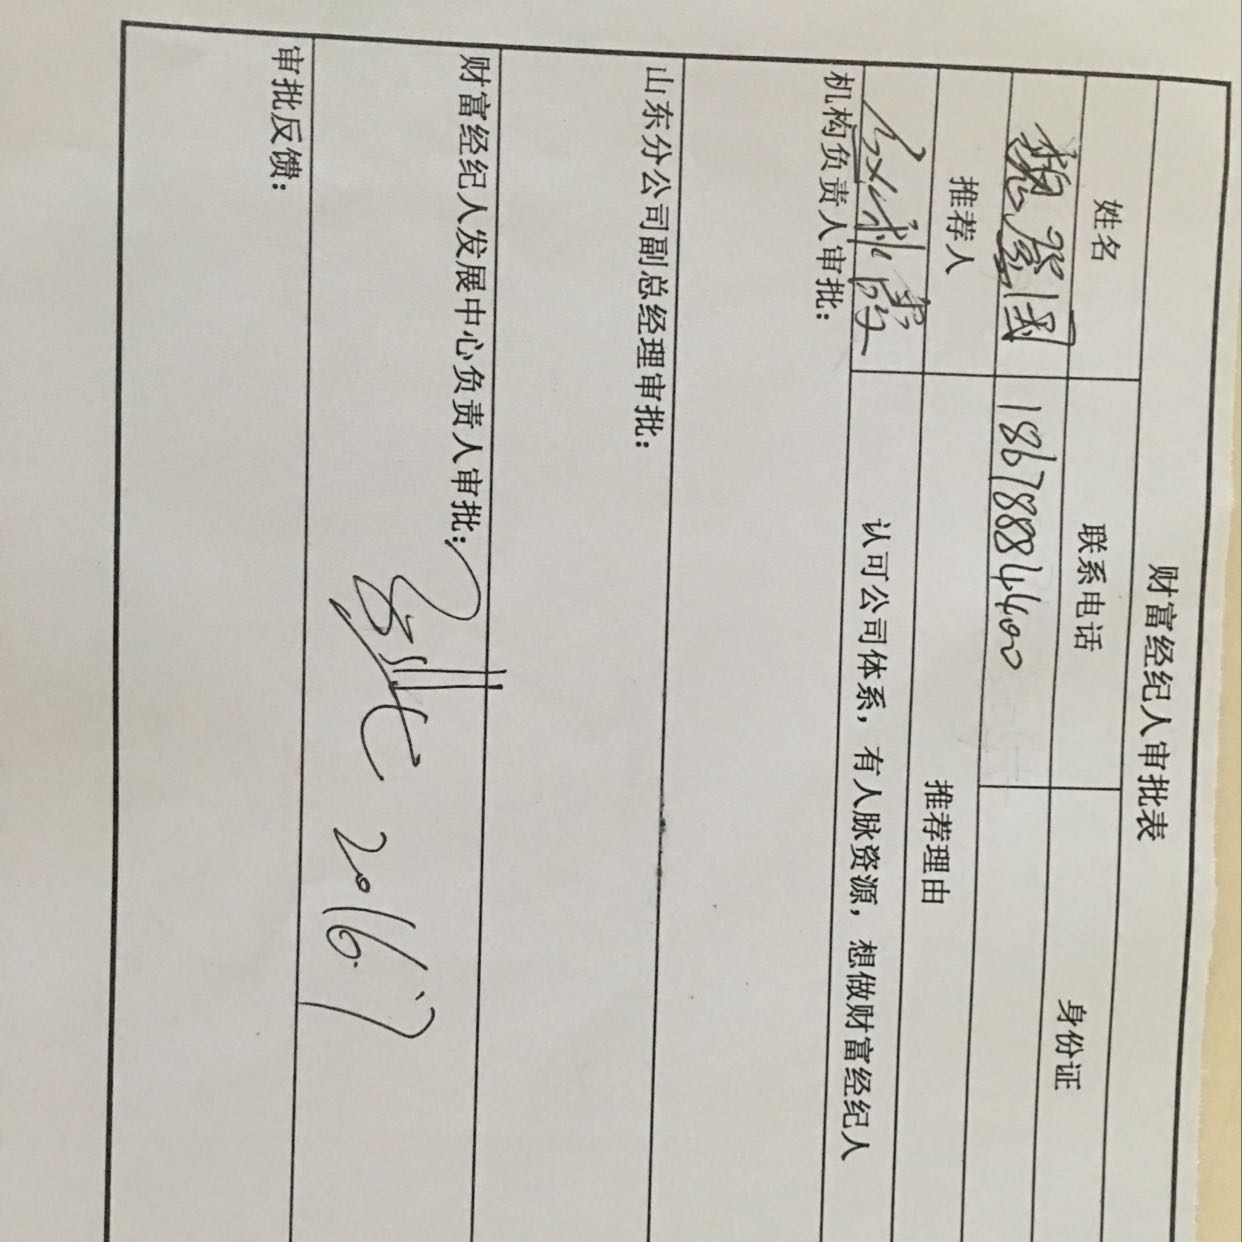 财富经纪人审批表
姓名 联系电话 身份证
18678884400
推荐人 推荐理由
认可公司体系，有人脉资源，想做财富经纪人
机构负责人审批：
山东分公司副总经理审批：
财富经纪人发展中心负责人审批：
2016.7
审批反馈：